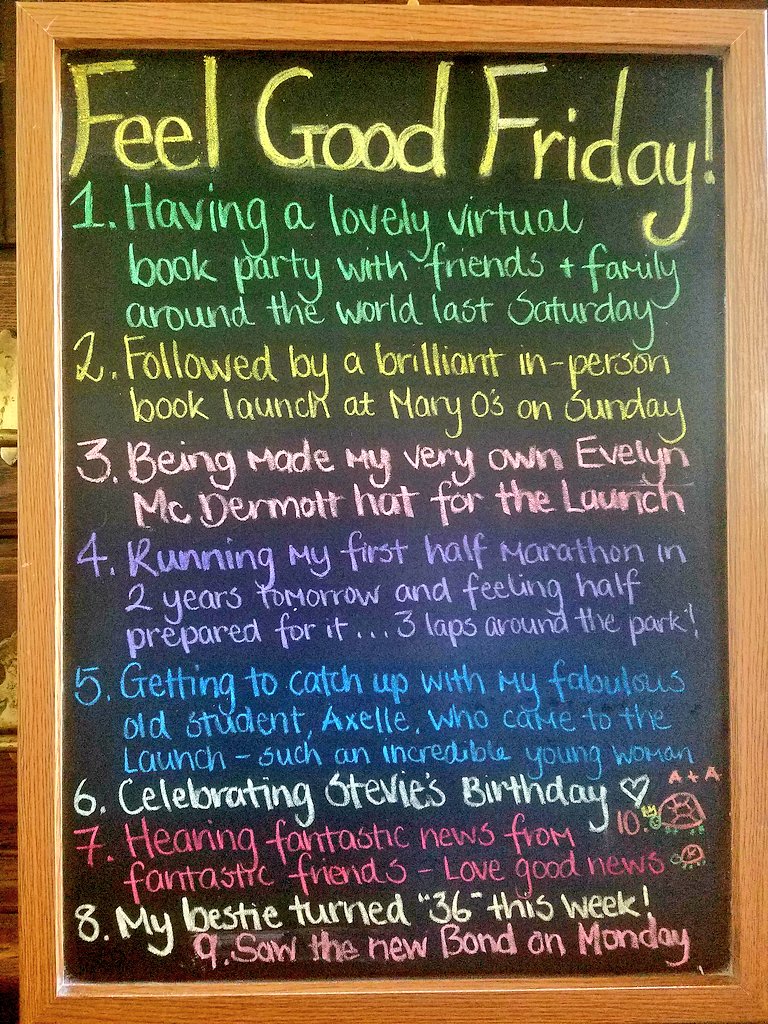 Feel Good Friday!
1. Having a lovely virtual
book party with friends + family
around the world last Saturday
2. Followed by a brilliant in-person
book launch at Mary O's on Sunday
3. Being made my very own Evelyn
Mc Dermott hat for the Launch
4. Running my first half marathon in
2 years tomorrow and feeling half
prepared for it... 3 laps around the park!
5. Getting to catch up with my fabulous
old student, Axelle, who came to the
Launch - such an incredible young woman
6. Celebrating Stevie's Birthday ♡
A + A
10.
7. Hearing fantastic news from
fantastic friends - Love good news
8. My bestie turned "36" this week!
9. Saw the new Bond on Monday